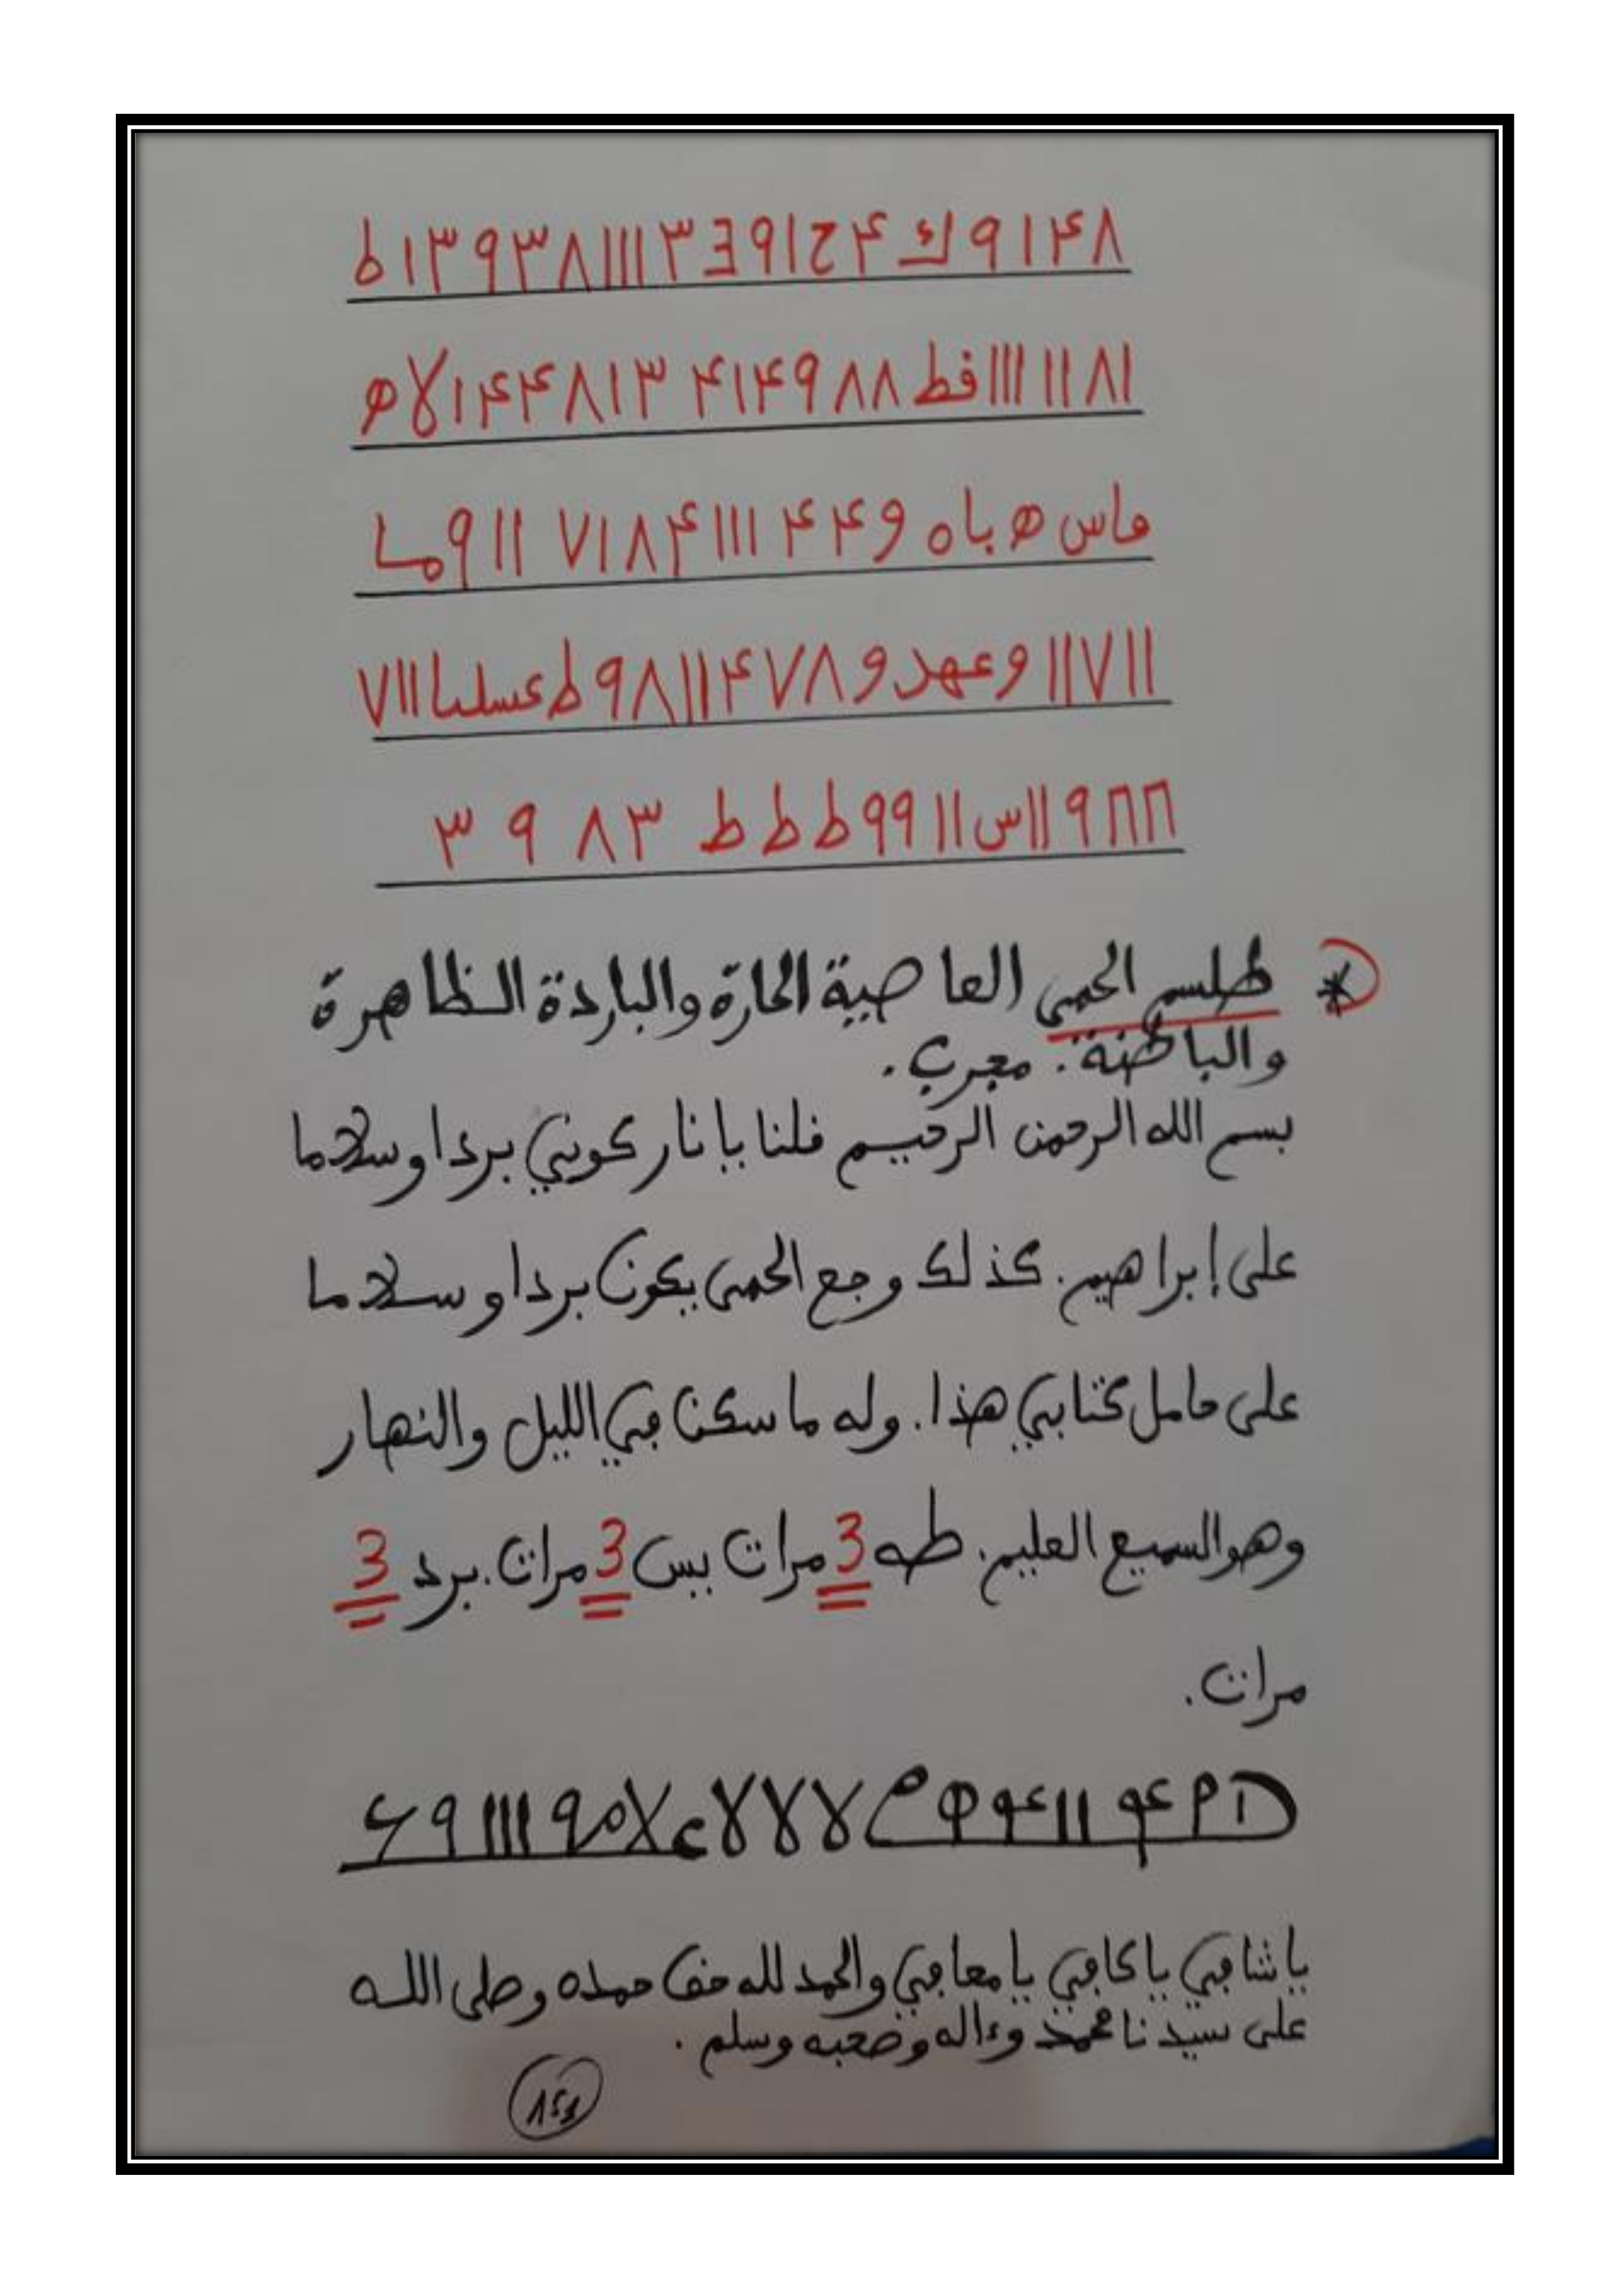 ٨ ۴ ١ ٩ ك ۴ ح ١ ٩ E ٣ ١١١ ٨ ٣ ٩ ٣ ١ ط
١ ٨ ١١ ١١١ فط ٨ ٨ ٩ ۴ ١ ۴ ٣ ١ ٨ ۴ ۴ ١ لا ه
ماس ه باه و ۴ ۴ ١١١ ۴ ٨ ١ ٧ ١١ ٩
١١ ٧ ١١ وعهد و ٨ ٧ ۴ ١١ ٨ ٩ ط عسلسا ١١ ٧
٩ ١١ س ١١ ٩ ٩ ط ط ط ٣ ٨ ٩ ٣
طلسم الحمى العاصية الحارة والباردة الظاهرة
والباطنة. مجرب.
بسم الله الرحمن الرحيم فلنا يا نار كوني بردا وسلاما
على إبراهيم. كذلك وجع الحمى يكون بردا وسلاما
على حامل كتابي هذا. وله ما سكن في الليل والنهار
وهو السميع العليم. طه 3 مرات يس 3 مرات. برد 3
مرات.
يا شافي يا كافي يا معافي والحمد لله حق حمده وصلى الله
على سيدنا محمد وءاله وصحبه وسلم.